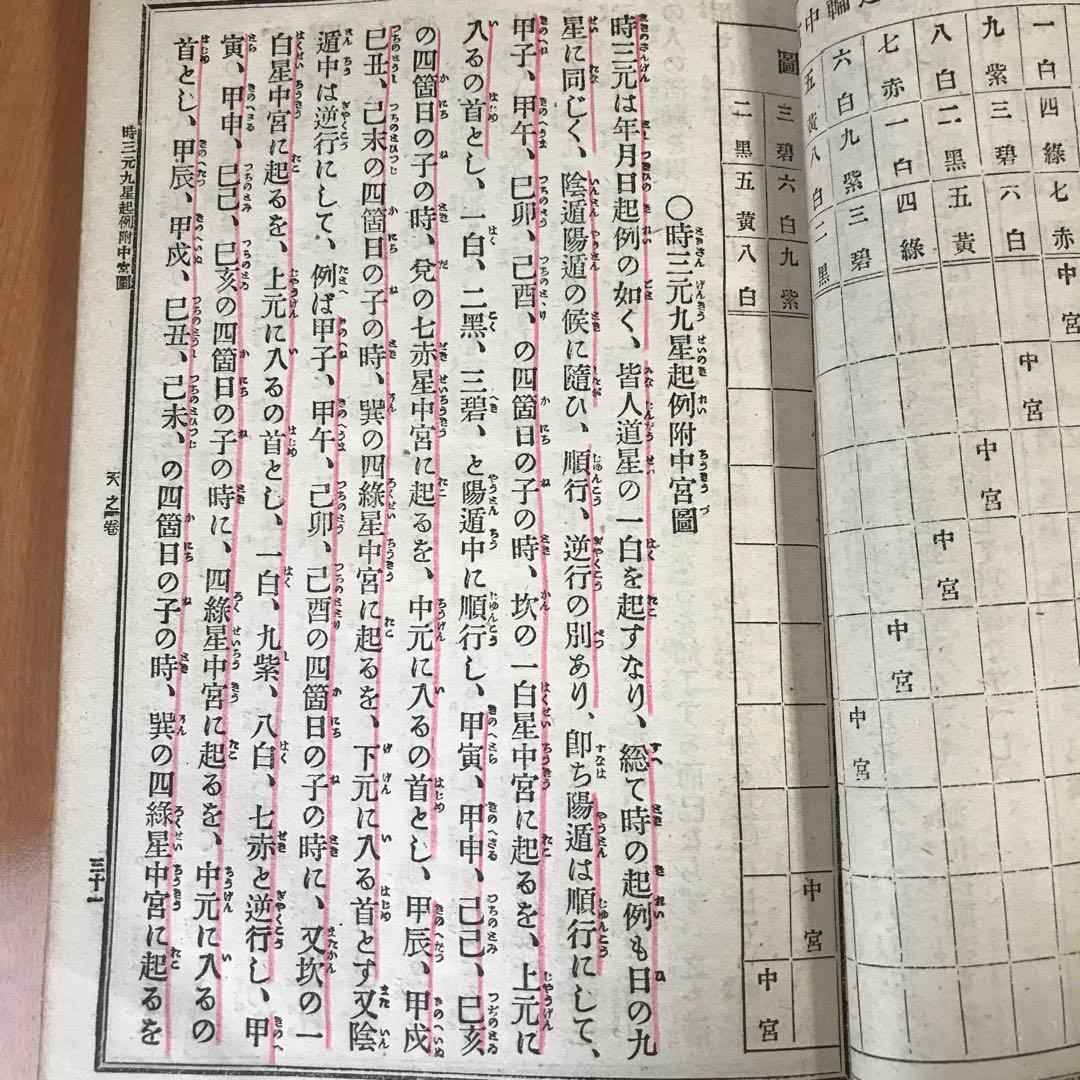 一白四綠七赤 中宮
九紫三碧六白 中宮
八白二黑五黃 中宮
七赤一白四綠 中宮
六白九紫三碧 中宮
五黃八白二黑 中宮
圖
三碧六白九紫 中宮
二黑五黃八白 中宮
〇時三元九星起例附中宮圖
時三元は年月日起例の如く、皆人道星の一白を起すなり、総て時の起例も日の九
星に同じく、陰遁陽遁の候に隨ひ、順行、逆行の別あり、卽ち陽遁は順行にして、
甲子、甲午、巳卯、己酉、の四箇日の子の時、坎の一白星中宮に起るを、上元に
入るの首とし、一白、二黑、三碧、と陽遁中に順行し、甲寅、甲申、己己、巳亥
の四箇日の子の時、兌の七赤星中宮に起るを、中元に入るの首とし、甲辰、甲戍
巳丑、己未の四箇日の子の時、巽の四綠星中宮に起るを、下元に入る首とす又陰
遁中は逆行にして、例ば甲子、甲午、己卯、己酉の四箇日の子の時に、又坎の一
白星中宮に起るを、上元に入るの首とし、一白、九紫、八白、七赤と逆行し、甲
寅、甲申、巳己、巳亥の四箇日の子の時に、四綠星中宮に起るを、中元に入るの
首とし、甲辰、甲戍、巳丑、己未、の四箇日の子の時、巽の四綠星中宮に起るを
時三元九星起例附中宮圖
天之卷
三十一